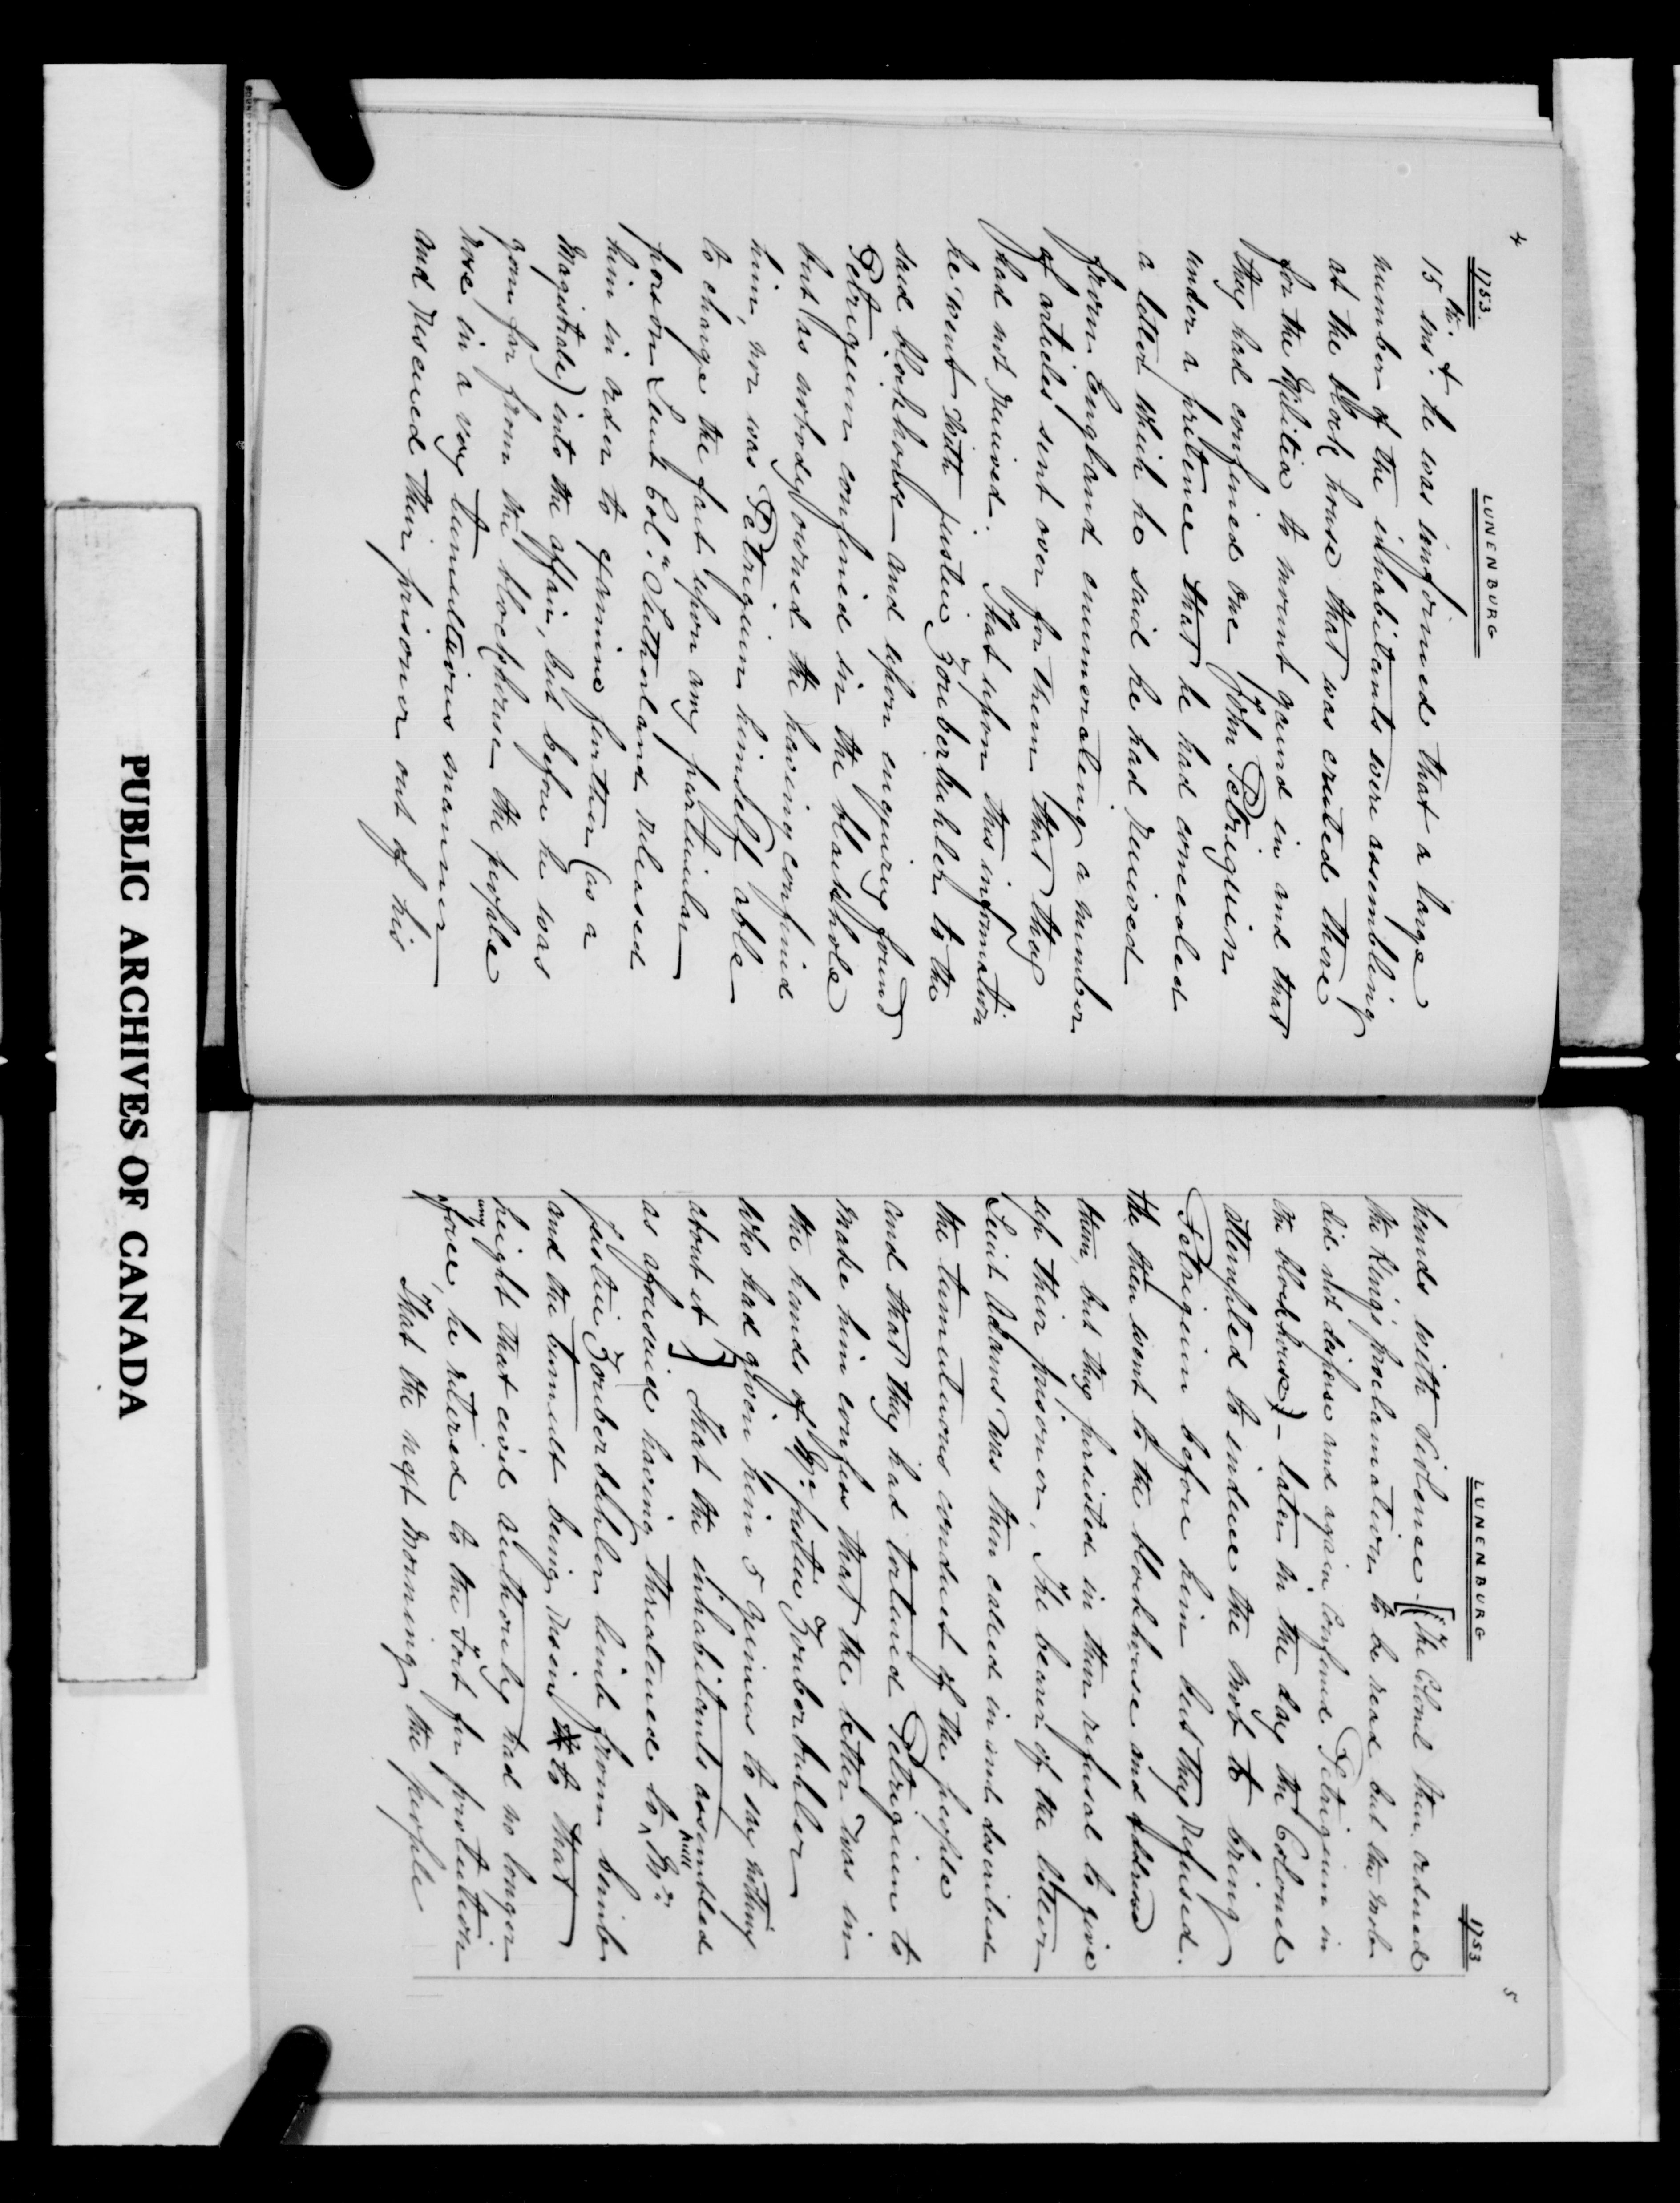 4
1753.
LUNENBURG
15th inst he was informed that a large
number of the inhabitants were assembling
at the block house that was erected there
for the Militia to mount guard in and that
they had confined one John Petriquin
under a pretence that he had concealed
a letter which he said he had received
from England enumerating a number
of articles sent over for them that they
had not received. That upon this information
he went with justice Zouberbuhler to the
said blockhouse and upon enquiring found
Petriquin confined in the black hole
but as nobody owned the having confined
him, nor was Petriquin himself able
to charge the fact upon any particular
person Lieut Col. Sutherland released
him in order to examine further (as a
Magistrate) into the affair, but before he was
gone far from the blockhouse the people
rose in a very tumultuous manner
and rescued their prisoner out of his
LUNENBURG
1753
5
hands with violence. [The Colonel then ordered
the Kings proclamation to be read but the mob
did not disperse and again confined Petriquin in
the blockhouse) - later in the day the Colonel
attempted to induce the mob to bring
Petriquin before him but they refused.
He then went to the blockhouse and addressed
them, but they persisted in their refusal to give
up their prisoner. The bearer of the letter
Lieut Adams was then called in and described
the tumultuous conduct of the people
and that they had tortured Petriquin to
make him confess that the letter was in
the hands of Mr. justice Zouberbuhler
who had given him 5 guineas to say nothing
about it] That the inhabitants assembled
as aforesaid having threatened to pull Mr.
justice Zouberbuhler limb from limb
and the tumult being risen to that
height that civil authority had no longer
any force, he retired to the Fort for protection
That the next morning the people
PUBLIC ARCHIVES OF CANADA